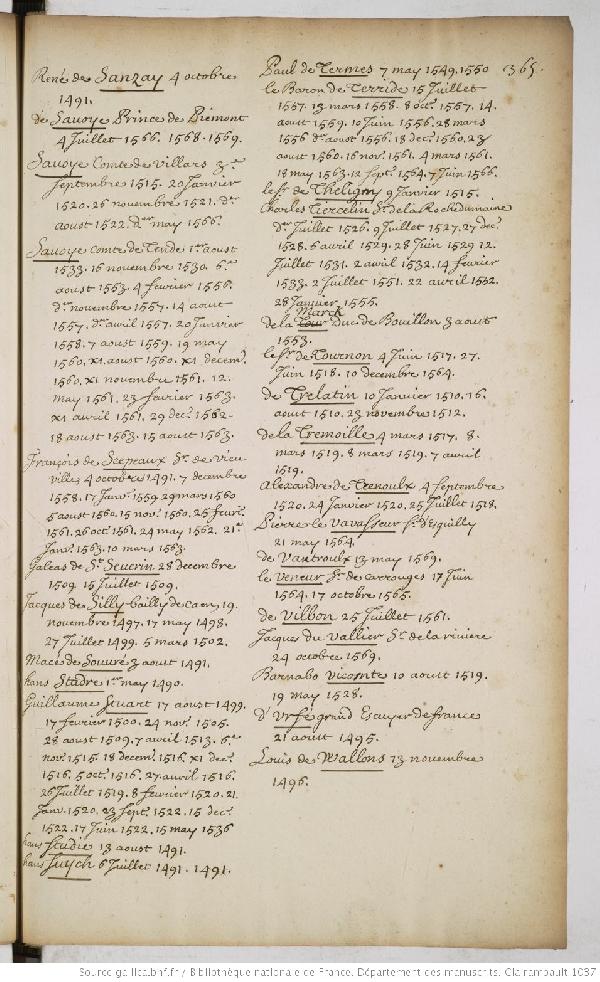 365.
René de Sanzay 4 octobre
1491.
de Savoye Prince de Piémont
4 Juillet 1566. 1568. 1569.
Savoye Comte de Villars 3.e
Septembre 1515. 20 Janvier
1520. 26 novembre 1521. d.er
aoust 1522. d.er may 1566.
Savoye comte de Tende 1.er aoust
1533. 16 novembre 1530. 6.e
aoust 1563. 4 fevrier 1556.
d.er novembre 1557. 14 aout
1557. d.er avril 1557. 20 Janvier
1558. 7 aoust 1559. 19 may
1560. xi. aoust 1560. xi decem.
1560. xi novembre 1561. 12.
may 1561. 23 fevrier 1563.
xi avril 1561. 29 dec. 1562.
18 aoust 1563. 15 aoust 1563.
François de Scepeaux S.r de Vieu
ville, 4 octobre 1491. 7 decembre
1558. 17 Janv. 1559. 29 mars 1560
5 aoust 1560. 15 nov. 1560. 25 fevri.
1561. 26 oct. 1561. 24 may 1562. 21.e
Janv. 1563. 10 mars 1563.
Galeas de S.t Severin 28 decembre
1509. 15 Juillet 1509.
Jacques de Silly bailly de Caen, 19.
novembre 1497. 17 may 1498.
27 Juillet 1499. 5 mars 1502.
Macés de Souvré 3 aoust 1491.
hans Stadre 1.er may 1490.
Guillaume Stuart 17 aoust 1499.
17 fevrier 1500. 24 nov. 1505.
28 aoust 1509. 7 avril 1513. 6.e
nov. 1515. 18 decem. 1516. xi dec.
1516. 5 oct. 1516. 27 avril 1516.
26 Juillet 1519. 8 fevrier 1520. 21.
Janv. 1520. 23 Sept. 1522. 15 dec.
1522. 17 Juin 1522. 15 may 1536
hans Studie 13 aoust 1491.
hans Suych 6 Juillet 1491. 1491.
Paul de Termes 7 may 1549. 1550
le Baron de Terride 15 Juillet
1557. 13 mars 1558. 8 oct. 1557. 14.
aoust 1559. 10 Juin 1556. 28 mars
1556 d.er aoust 1556. 18 dec. 1560. 23
aout 1560. 16 nov. 1561. 4 mars 1561.
18 may 1563. 12 Sept. 1564. 7 Juin 1566.
le S.r de Theligny 9 Janvier 1515.
Charles Tiercelin S.r de la Rochedumaine
d.er Juillet 1526. 9 Juillet 1527. 27 dec.
1528. 6 avril 1529. 28 Juin 1529. 12.
Juillet 1531. 2 avril 1532. 14 fevrier
1533. 2 Juillet 1551. 22 avril 1552.
28 Janvier 1555.
Marck
de la Tour duc de Bouillon 3 aoust
1553.
le S.r de Tournon 4 Juin 1517. 27.
Juin 1518. 10 decembre 1564.
de Trelatin 10 Janvier 1510. 16.
aout 1510. 23 novembre 1512.
de la Tremoille 4 mars 1517. 8.
mars 1519. 8 mars 1519. 7 avril
1519.
Alexandre de Trenoulx 4 Septembre
1520. 24 Janvier 1520. 25 Juillet 1518.
Pierre le Vavasseur S.r d'Eguilly
21 may 1564.
de Vantroulx 13 may 1569.
le Veneur S.r de Carrouges 17 Juin
1564. 17 octobre 1565.
de Vilbon 25 Juillet 1561.
Jacques du Vallier S.r de la riviere
24 octobre 1569.
Barnabo Viconte 10 aoust 1519.
19 may 1528.
d'Urfé grand Escuyer de france
21 aoust 1495.
Louis de Wallons 13 novembre
1496.
Source gallica.bnf.fr / Bibliothèque nationale de France. Département des manuscrits. Clairambault 1037